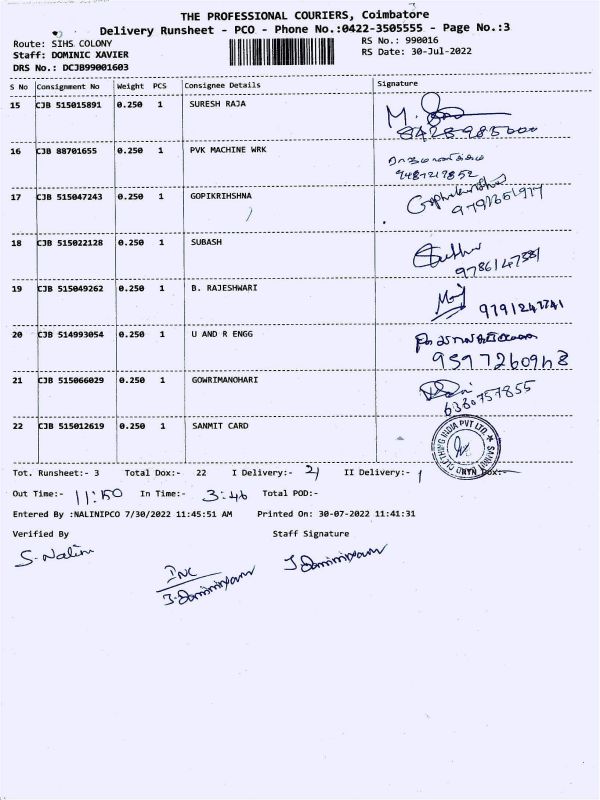 THE PROFESSIONAL COURIERS, Coimbatore
Delivery Runsheet - PCO - Phone No.:0422-3505555 - Page No.:3
Route: SIHS COLONY RS No.: 990016
Staff: DOMINIC XAVIER RS Date: 30-Jul-2022
DRS No.: DCJB99001603
S No Consignment No Weight PCS Consignee Details Signature
15 CJB 515015891 0.250 1 SURESH RAJA
16 CJB 88701655 0.250 1 PVK MACHINE WRK
9487217852
17 CJB 515047243 0.250 1 GOPIKRIHSHNA
18 CJB 515022128 0.250 1 SUBASH
9786147381
19 CJB 515049262 0.250 1 B. RAJESHWARI
9791247741
20 CJB 514993054 0.250 1 U AND R ENGG
9597260963
21 CJB 515066029 0.250 1 GOWRIMANOHARI
6380757855
22 CJB 515012619 0.250 1 SANMIT CARD
Tot. Runsheet:- 3 Total Dox:- 22 I Delivery:- 21 II Delivery:- 1 Non Dox:-
Out Time:- 11:50 In Time:- 3:46 Total POD:-
Entered By :NALINIPCO 7/30/2022 11:45:51 AM Printed On: 30-07-2022 11:41:31
Verified By Staff Signature
S. Nalini